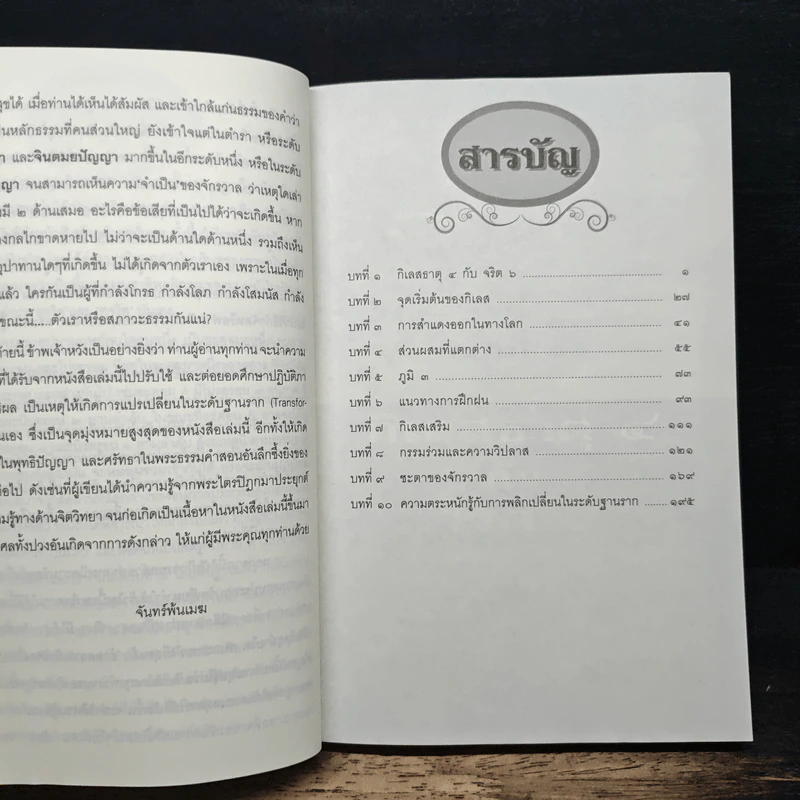 สุขได้ เมื่อท่านได้เห็นได้สัมผัส และเข้าใกล้แก่นธรรมของคำว่า
นหลักธรรมที่คนส่วนใหญ่ ยังเข้าใจแต่ในตำรา หรือระดับ
และจินตมยปัญญา มากขึ้นในอีกระดับหนึ่ง หรือในระดับ
ญา จนสามารถเห็นความ"จำเป็น"ของจักรวาล ว่าเหตุใดเล่า
มี ๒ ด้านเสมอ อะไรคือข้อเสียที่เป็นไปได้ว่าจะเกิดขึ้น หาก
งกลไกขาดหายไป ไม่ว่าจะเป็นด้านใดด้านหนึ่ง รวมถึงเห็น
อุปาทานใดๆที่เกิดขึ้น ไม่ได้เกิดจากตัวเราเอง เพราะในเมื่อทุก
แล้ว ใครกันเป็นผู้ที่กำลังโกรธ กำลังโลภ กำลังโสมนัส กำลัง
ขณะนี้.....ตัวเราหรือสภาวะธรรมกันแน่?
ท้ายนี้ ข้าพเจ้าหวังเป็นอย่างยิ่งว่า ท่านผู้อ่านทุกท่าน จะนำความ
ที่ได้รับจากหนังสือเล่มนี้ไปปรับใช้ และต่อยอดศึกษาปฏิบัติภา
ผล เป็นเหตุให้เกิดการแปรเปลี่ยนในระดับฐานราก (Transfor-
นเอง ซึ่งเป็นจุดมุ่งหมายสูงสุดของหนังสือเล่มนี้ อีกทั้งให้เกิด
ในพุทธิปัญญา และศรัทธาในพระธรรมคำสอนอันลึกซึ้งยิ่งของ
่อไป ดังเช่นที่ผู้เขียนได้นำความรู้จากพระไตรปิฎกมาประยุกต์
ามรู้ทางด้านจิตวิทยา จนก่อเกิดเป็นเนื้อหาในหนังสือเล่มนี้ขึ้นมา
ศลทั้งปวงอันเกิดจากการดังกล่าว ให้แก่ผู้มีพระคุณทุกท่านด้วย
จันทร์พ้นเมฆ
สารบัญ
บทที่ ๑ กิเลสธาตุ ๔ กับ จริต ๖ ........ ๑
บทที่ ๒ จุดเริ่มต้นของกิเลส ........ ๒๗
บทที่ ๓ การสำแดงออกในทางโลก ........ ๔๑
บทที่ ๔ ส่วนผสมที่แตกต่าง ........ ๕๕
บทที่ ๕ ภูมิ ๓ ........ ๗๓
บทที่ ๖ แนวทางการฝึกฝน ........ ๙๓
บทที่ ๗ กิเลสเสริม ........ ๑๑๑
บทที่ ๘ กรรมร่วมและความวิปลาส ........ ๑๒๑
บทที่ ๙ ชะตาของจักรวาล ........ ๑๖๙
บทที่ ๑๐ ความตระหนักรู้กับการพลิกเปลี่ยนในระดับฐานราก ........ ๑๙๕